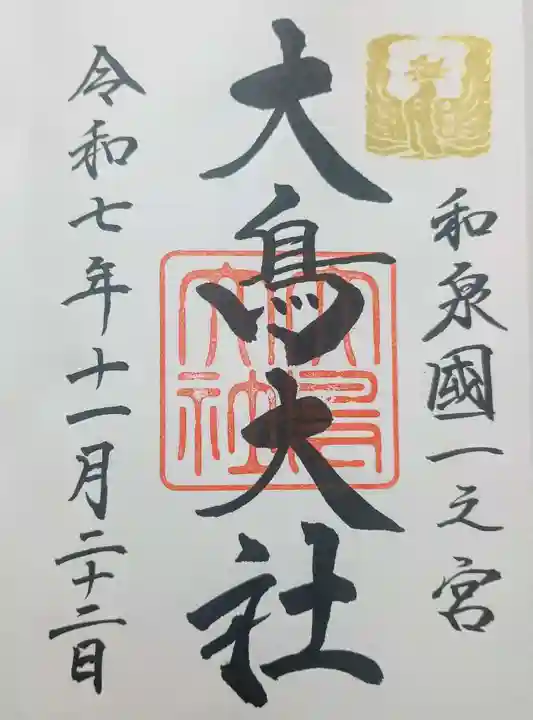 和泉國一之宮
大鳥大社
大鳥大社
令和七年十一月二十二日